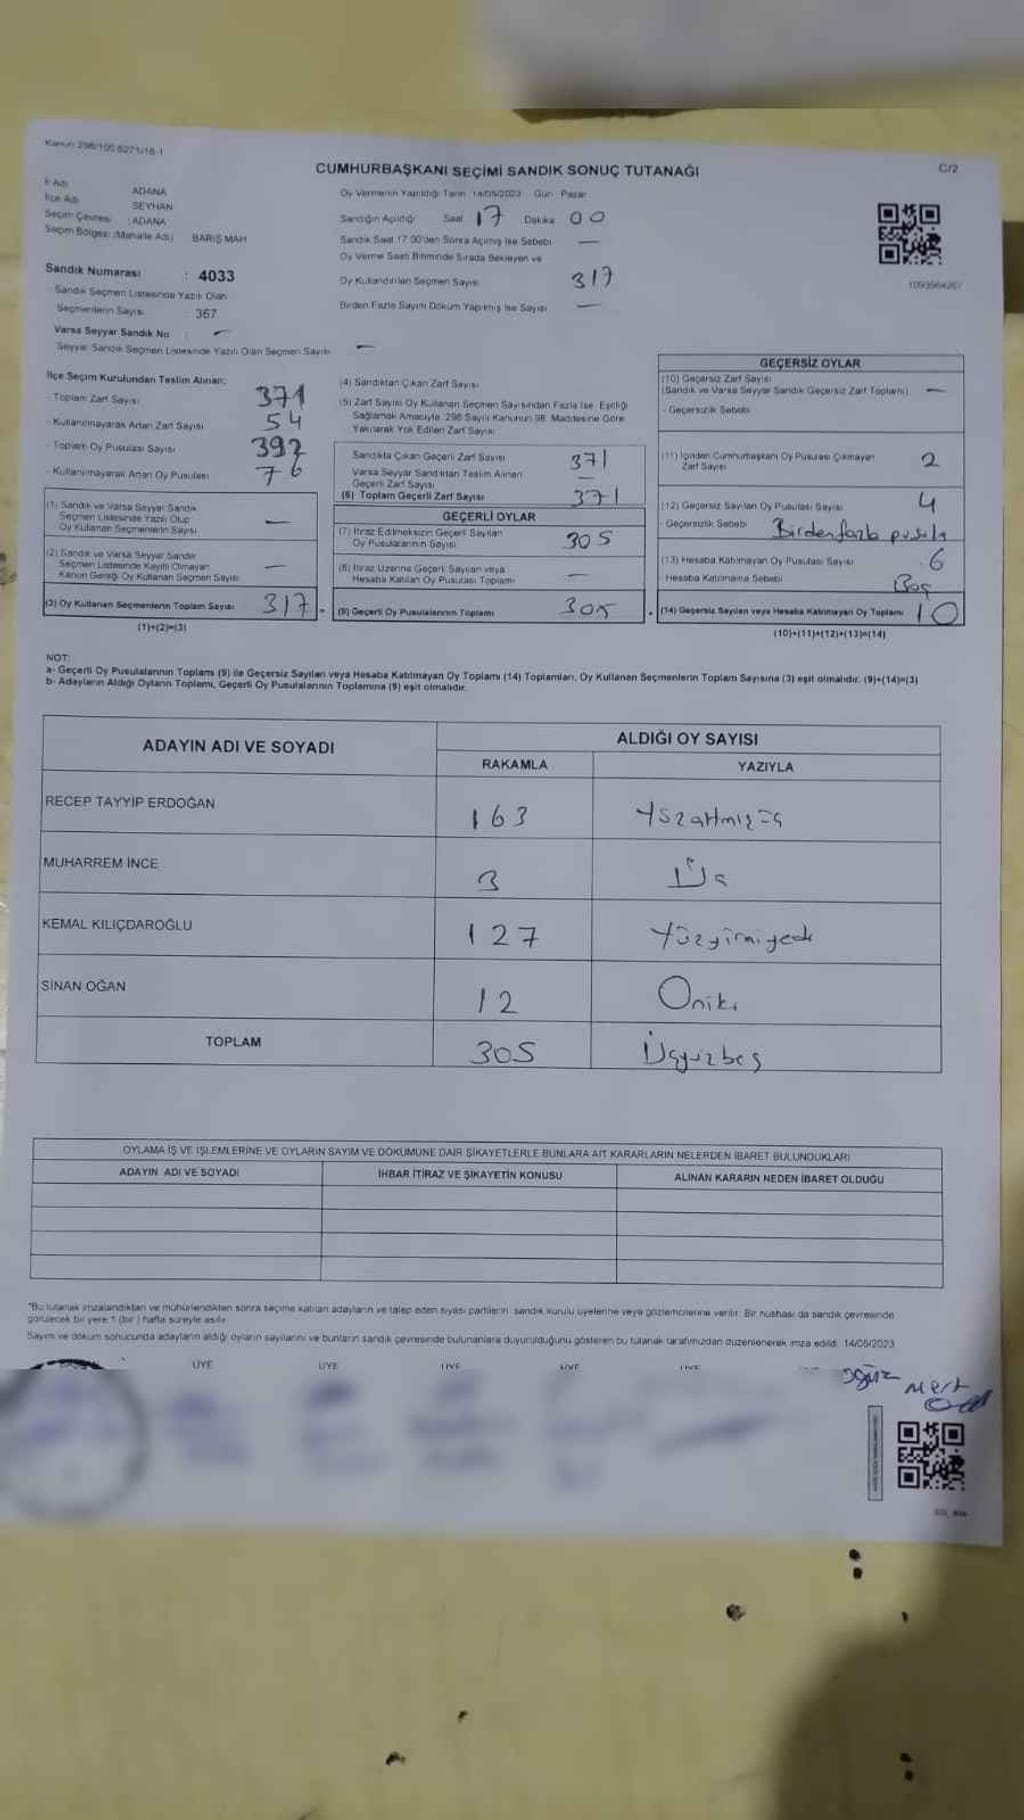 Kanun 298/100 6271/18-1
CUMHURBAŞKANI SEÇİMİ SANDIK SONUÇ TUTANAĞI
C/2
İl Adı ADANA
İlçe Adı SEYHAN
Seçim Çevresi : ADANA
Seçim Bölgesi (Mahalle Adı) BARIŞ MAH
Oy Vermenin Yapıldığı Tarih 14/05/2023 Gün Pazar
Sandığın Açıldığı Saat 17 Dakika 00
Sandık Saat 17.00'den Sonra Açılmış İse Sebebi —
Oy Verme Saati Bitiminde Sırada Bekleyen ve
Oy Kullandırılan Seçmen Sayısı 317
Birden Fazla Sayım Döküm Yapılmış İse Sayısı —
Sandık Numarası : 4033
Sandık Seçmen Listesinde Yazılı Olan
Seçmenlerin Sayısı 367
Varsa Seyyar Sandık No : —
Seyyar Sandık Seçmen Listesinde Yazılı Olan Seçmen Sayısı —
İlçe Seçim Kurulundan Teslim Alınan:
- Toplam Zarf Sayısı 371
- Kullanılmayarak Artan Zarf Sayısı 54
- Toplam Oy Pusulası Sayısı 392
- Kullanılmayarak Artan Oy Pusulası 76
(1) Sandık ve Varsa Seyyar Sandık
Seçmen Listesinde Yazılı Olup
Oy Kullanan Seçmenlerin Sayısı —
(2) Sandık ve Varsa Seyyar Sandık
Seçmen Listesinde Kayıtlı Olmayan
Kanun Gereği Oy Kullanan Seçmen Sayısı —
(3) Oy Kullanan Seçmenlerin Toplam Sayısı 317
(1)+(2)=(3)
(4) Sandıktan Çıkan Zarf Sayısı
(5) Zarf Sayısı Oy Kullanan Seçmen Sayısından Fazla İse, Eşitliği
Sağlamak Amacıyla, 298 Sayılı Kanunun 98. Maddesine Göre
Yakılarak Yok Edilen Zarf Sayısı
Sandıkta Çıkan Geçerli Zarf Sayısı 371
Varsa Seyyar Sandıktan Teslim Alınan
Geçerli Zarf Sayısı —
(6) Toplam Geçerli Zarf Sayısı 371
GEÇERLİ OYLAR
(7) İtiraz Edilmeksizin Geçerli Sayılan
Oy Pusulalarının Sayısı 305
(8) İtiraz Üzerine Geçerli Sayılan veya
Hesaba Katılan Oy Pusulası Toplamı —
(9) Geçerli Oy Pusulalarının Toplamı 305
GEÇERSİZ OYLAR
(10) Geçersiz Zarf Sayısı
(Sandık ve Varsa Seyyar Sandık Geçersiz Zarf Toplamı) —
- Geçersizlik Sebebi
(11) İçinden Cumhurbaşkanı Oy Pusulası Çıkmayan
Zarf Sayısı 2
(12) Geçersiz Sayılan Oy Pusulası Sayısı 4
- Geçersizlik Sebebi Birden fazla pusula
(13) Hesaba Katılmayan Oy Pusulası Sayısı 6
- Hesaba Katılmama Sebebi Boş
(14) Geçersiz Sayılan veya Hesaba Katılmayan Oy Toplamı 10
(10)+(11)+(12)+(13)=(14)
NOT:
a- Geçerli Oy Pusulalarının Toplamı (9) ile Geçersiz Sayılan veya Hesaba Katılmayan Oy Toplamı (14) Toplamları, Oy Kullanan Seçmenlerin Toplam Sayısına (3) eşit olmalıdır. (9)+(14)=(3)
b- Adayların Aldığı Oyların Toplamı, Geçerli Oy Pusulalarının Toplamına (9) eşit olmalıdır.
ADAYIN ADI VE SOYADI ALDIĞI OY SAYISI
RAKAMLA YAZIYLA
RECEP TAYYİP ERDOĞAN 163 Yüzatmışüç
MUHARREM İNCE 3 Üç
KEMAL KILIÇDAROĞLU 127 Yüzyirmiyedi
SİNAN OĞAN 12 Oniki
TOPLAM 305 Üçyüzbeş
OYLAMA İŞ VE İŞLEMLERİNE VE OYLARIN SAYIM VE DÖKÜMÜNE DAİR ŞİKAYETLERLE BUNLARA AİT KARARLARIN NELERDEN İBARET BULUNDUKLARI
ADAYIN ADI VE SOYADI İHBAR İTİRAZ VE ŞİKAYETİN KONUSU ALINAN KARARIN NEDEN İBARET OLDUĞU
*Bu tutanak imzalandıktan ve mühürlendikten sonra seçime katılan adayların ve talep eden siyasi partilerin sandık kurulu üyelerine veya gözlemcilerine verilir. Bir nüshası da sandık çevresinde
görülecek bir yere 1 (bir) hafta süreyle asılır.
Sayım ve döküm sonucunda adayların aldığı oyların sayılarını ve bunların sandık çevresinde bulunanlara duyurulduğunu gösteren bu tutanak tarafımızdan düzenlenerek imza edildi. 14/05/2023
ÜYE ÜYE ÜYE ÜYE
Oğuz Mert